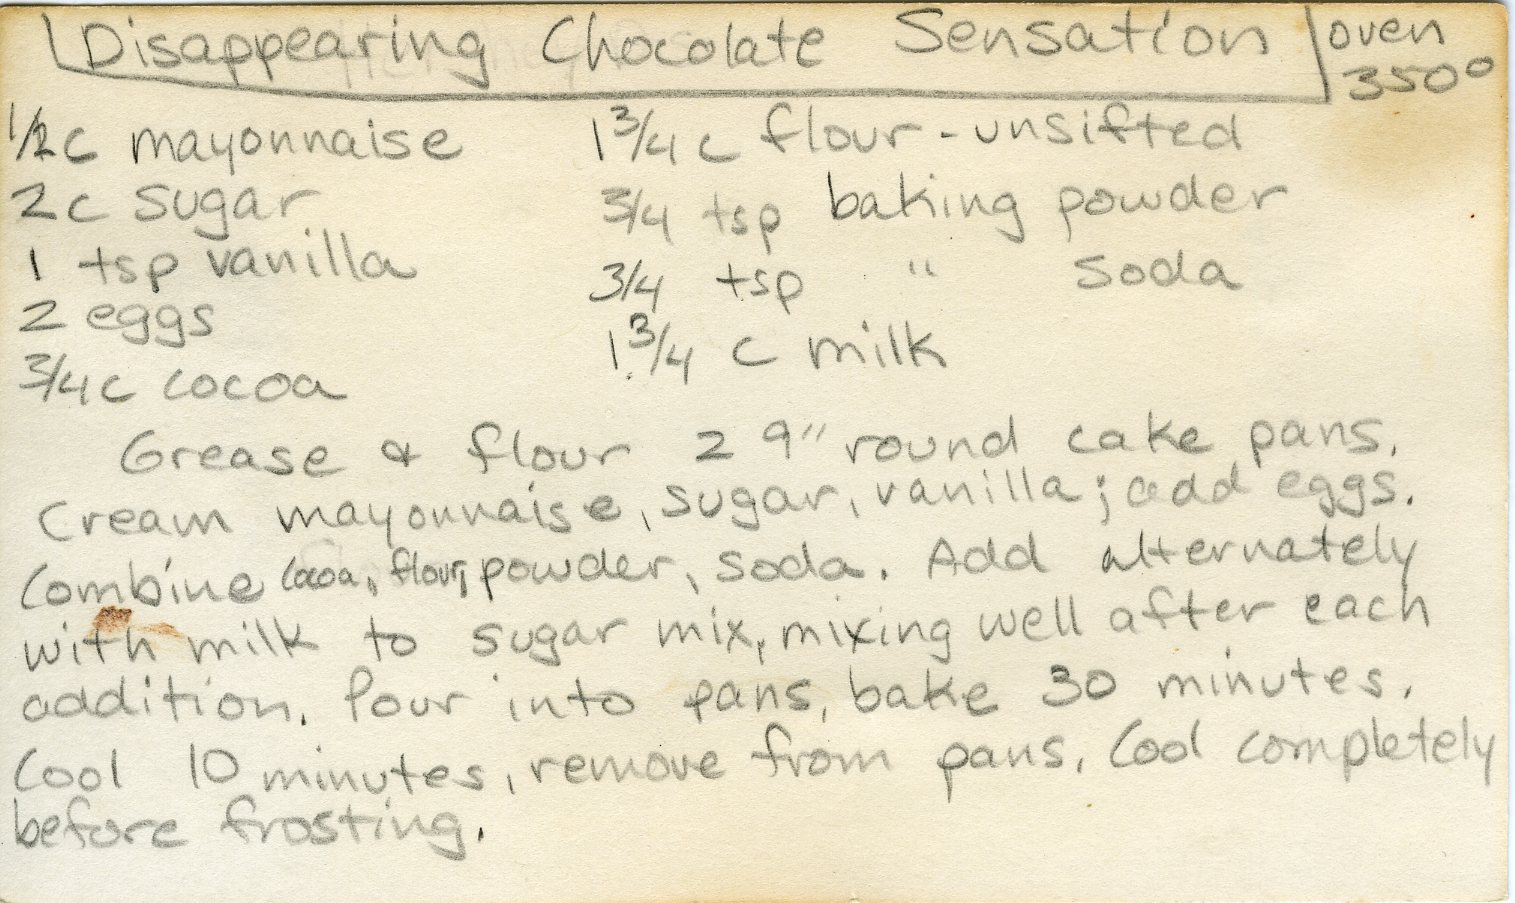 Disappearing Chocolate Sensation
oven
350°
1/2 c mayonnaise
2 c sugar
1 tsp vanilla
2 eggs
3/4 c cocoa
1 3/4 c flour - unsifted
3/4 tsp baking powder
3/4 tsp " soda
1 3/4 c milk
Grease & flour 2 9" round cake pans.
Cream mayonnaise, sugar, vanilla; add eggs.
Combine cocoa, flour, powder, soda. Add alternately
with milk to sugar mix, mixing well after each
addition. Pour into pans, bake 30 minutes.
Cool 10 minutes, remove from pans. Cool completely
before frosting.